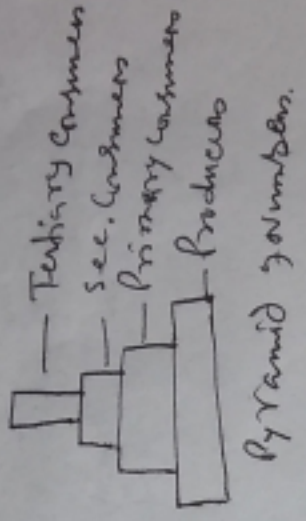 Tertiary Consumers
Sec. Consumers
Primary Consumers
Producers
Pyramid of Numbers.